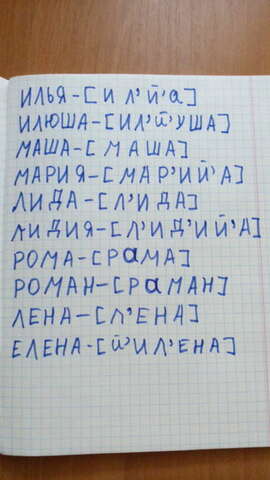 ИЛЬЯ-[ИЛ'Й'а]
ИЛЮША-[ИЛ'Й'УША]
МАША-[МАША]
МАРИЯ-[МАР'ИЙ'А]
ЛИДА-[Л'ИДА]
ЛИДИЯ-[Л'ИД'ИЙ'А]
РОМА-[РаМА]
РОМАН-[РаМАН]
ЛЕНА-[Л'ЕНА]
ЕЛЕНА-[Й'ИЛ'ЕНА]